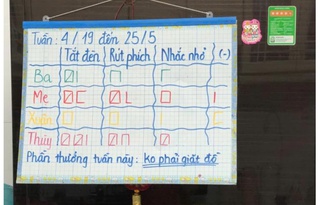 Tuần: 4/19 đến 25/5
Tắt đèn Rút phích Nhắc nhở (-)
Ba
Mẹ
Xuân
Thủy
Phần thưởng tuần này: ko phải giặt đồ